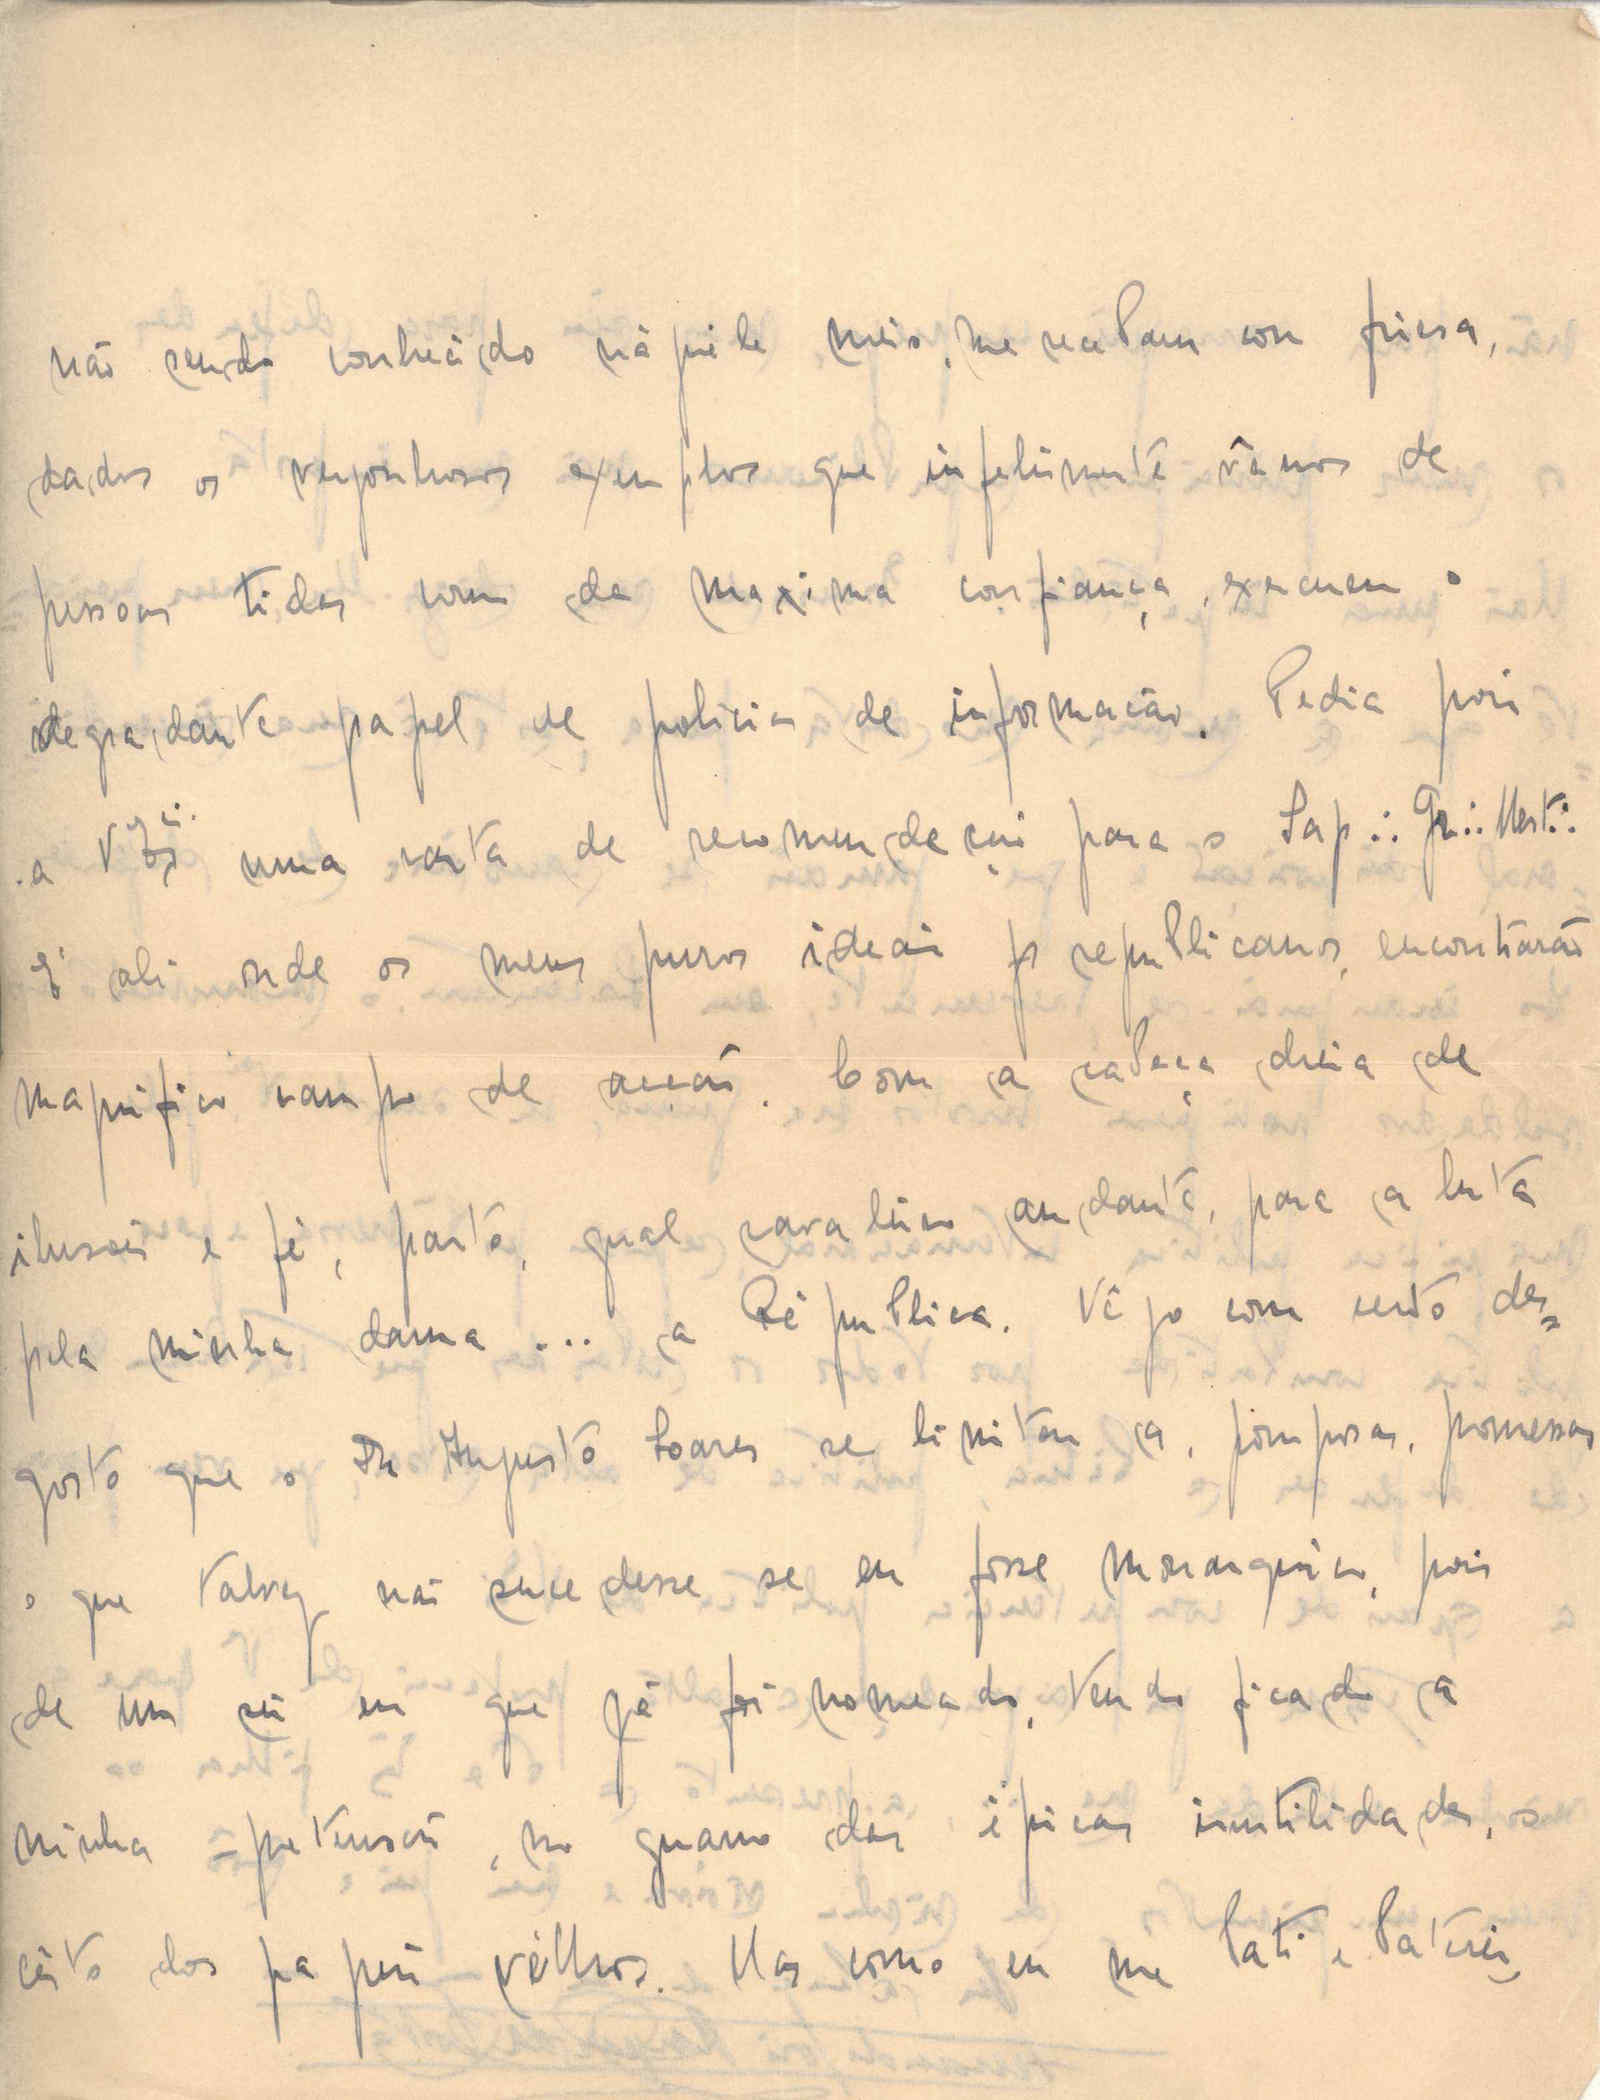 não sendo conhecido náquele meio, me recebam com frieza,
dados os vergonhosos exemplos que infelismente vêmos de
pessoas tidas como da maxima confiança, exercerem o
degradante papel de policias de informacão. Pedia pois
a V. uma carta de recomendação para o Sap∴ Gr∴ Mest∴
E' ali onde os meus puros ideais republicanos, encontrarão
magnifico campo de acção. Com a cabeça cheia de
ilusões e fé, parto, qual cavaleiro andante, para a luta
pela minha dama ... a Républica. Vêjo com certo des=
gosto que o Dr Augusto Soares se limitou a, pomposas, promessas
o que talvez não sucedesse se eu fosse monarquico, pois
de um sei eu que já foi nomeado, tendo ficado a
minha pretensão, no guano das épicas inutilidades, o
cêsto dos papeis vélhos. Mas como eu me bati e baterei,